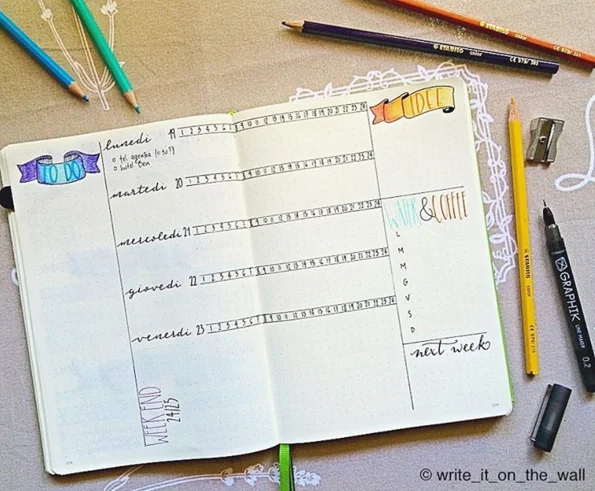 TO DO
lunedì 19 1 2 3 4 5 6 7 8 9 10 11 12 13 14 15 16 17 18 19 20 21 22 23 24
o tel. agenzia (11:30?)
martedì 20 1 2 3 4 5 6 7 8 9 10 11 12 13 14 15 16 17 18 19 20 21 22 23 24
mercoledì 21 1 2 3 4 5 6 7 8 9 10 11 12 13 14 15 16 17 18 19 20 21 22 23 24
giovedì 22 1 2 3 4 5 6 7 8 9 10 11 12 13 14 15 16 17 18 19 20 21 22 23 24
venerdì 23 1 2 3 4 5 6 7 8 9 10 11 12 13 14 15 16 17 18 19 20 21 22 23 24
WEEKEND
24/25
IDEE
WATER & COFFEE
L
M
M
G
V
S
D
next week
STABILO
STABILO
STABILO
GRAPHIK
LINE MAKER 0.2
© write_it_on_the_wall